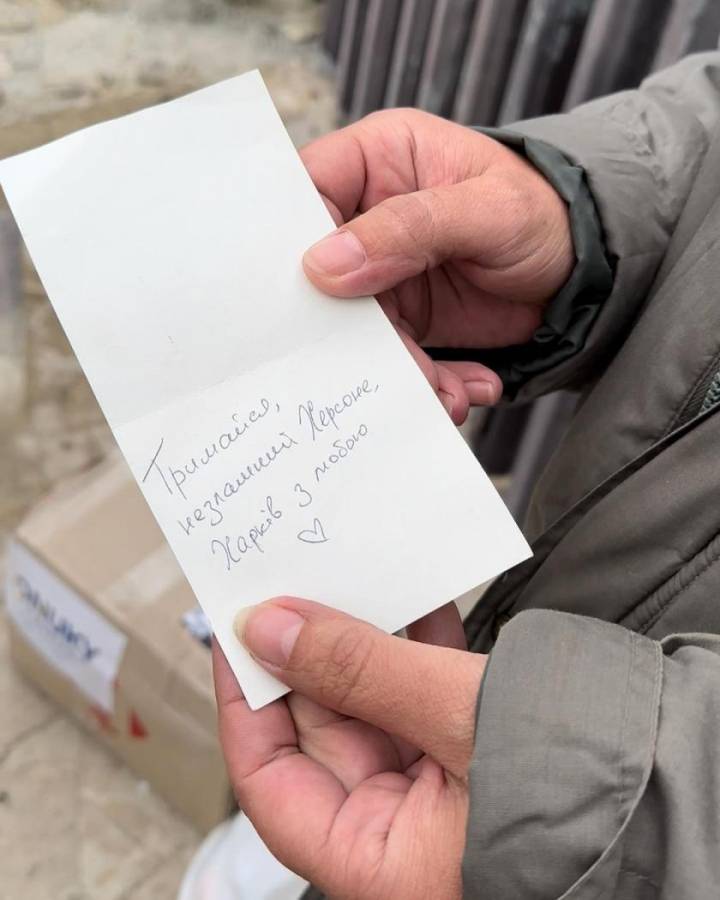 Тримайся,
незламний Херсоне,
Харків з тобою
♡